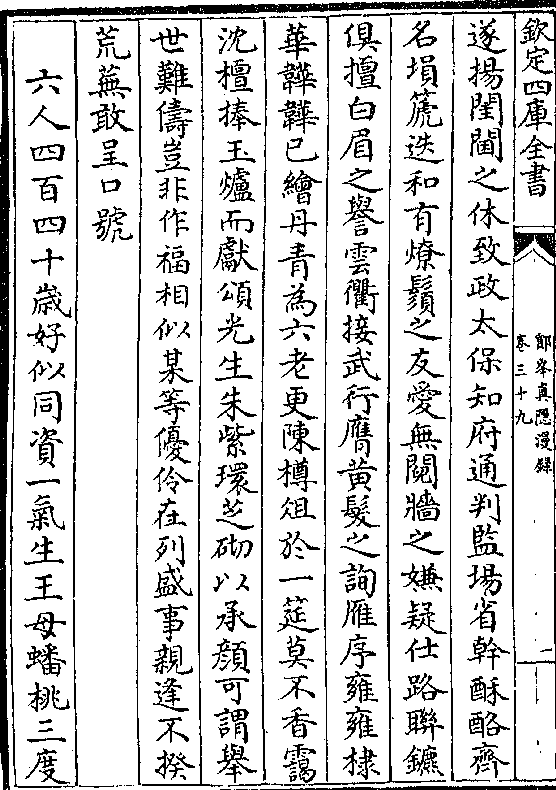 欽定四庫全書
鄮峰真隱漫錄
卷三十九
二
遂揚閨閫之休致政太保知府通判監場省幹酥酪齊
名塤箎迭和有燎鬚之友愛無鬩牆之嫌疑仕路聯鑣
俱擅白眉之譽雲衢接武行膺黄髪之詢雁序雍雍棣
華韡韡已繪丹青為六老更陳樽俎於一筵莫不香靄
沈檀捧玉爐而獻頌光生朱紫環芝砌以承顔可謂舉
世難儔豈非作福相似某等優伶在列盛事親逢不揆
荒蕪敢呈口號
六人四百四十歳好似同資一氣生王母蟠桃三度